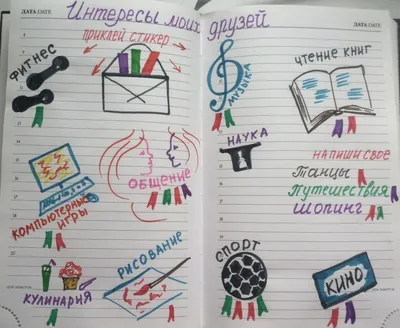 ДАТА/DATE
Интересы моих друзей
ДАТА/DATE
ФИТНЕС
ПРИКЛЕЙ СТИКЕР
МУЗЫКА
ЧТЕНИЕ КНИГ
КОМПЬЮТЕРНЫЕ
ИГРЫ
ОБЩЕНИЕ
НАУКА
НАПИШИ СВОЕ
Танцы
Путешествия
Шопинг
КУЛИНАРИЯ
РИСОВАНИЕ
СПОРТ
КИНО